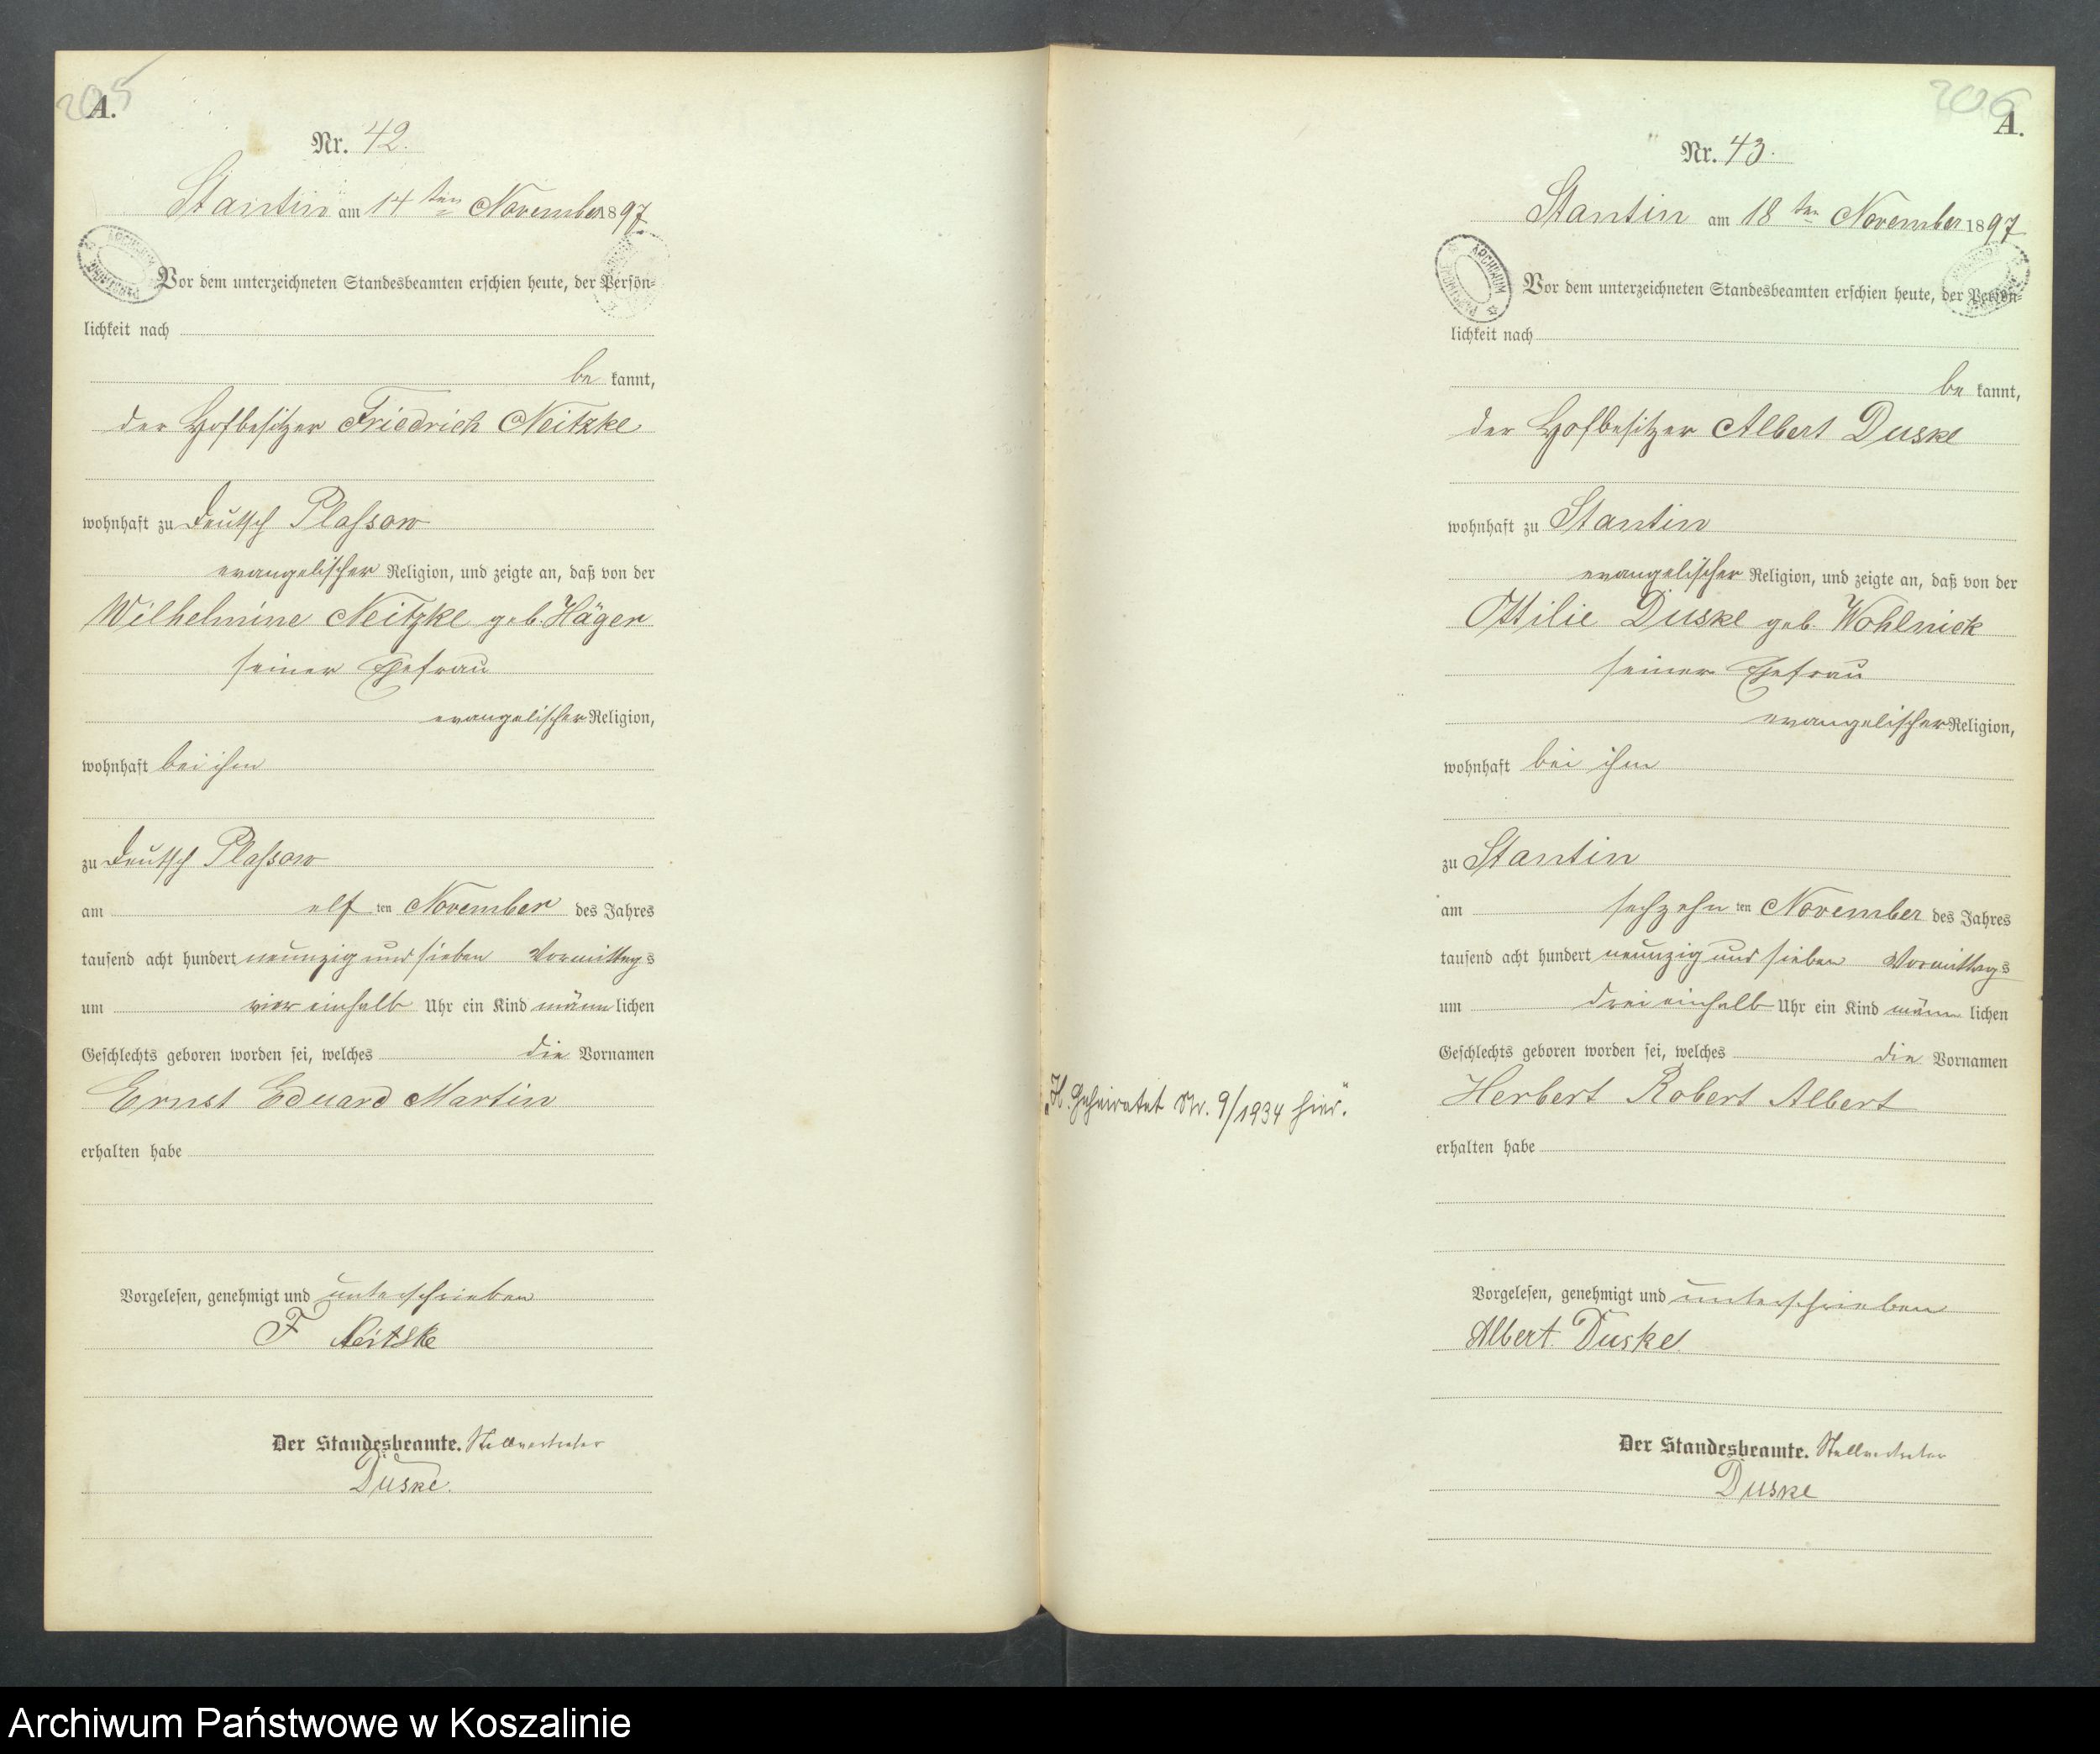 205
A.
Nr. 42.
Stantin am 14 ten November 1897
Vor dem unterzeichneten Standesbeamten erschien heute, der Persön-
lichkeit nach
be kannt,
der Hofbesitzer Friedrich Neitzke
wohnhaft zu Deutsch Plassow
evangelischer Religion, und zeigte an, daß von der
Wilhelmine Neitzke geb. Häger
seiner Ehefrau
evangelischer Religion,
wohnhaft bei ihm
zu Deutsch Plassow
am elf ten November des Jahres
tausend acht hundert neunzig und sieben Vormittags
um vier einhalb Uhr ein Kind männ lichen
Geschlechts geboren worden sei, welches die Vornamen
Ernst Eduard Martin
erhalten habe
Vorgelesen, genehmigt und unterschrieben
F Neitske
Der Standesbeamte. Stellvertreter
Duske.
206
A.
Nr. 43.
Stantin am 18 ten November 1897
ARCHIWUM
Vor dem unterzeichneten Standesbeamten erschien heute, der Persön-
lichkeit nach
be kannt,
der Hofbesitzer Albert Duske
wohnhaft zu Stantin
evangelischer Religion, und zeigte an, daß von der
Ottilie Duske geb. Wohlnick
seiner Ehefrau
evangelischer Religion,
wohnhaft bei ihm
zu Stantin
am sechzehn ten November des Jahres
tausend acht hundert neunzig und sieben Vormittags
um drei einhalb Uhr ein Kind männ lichen
Geschlechts geboren worden sei, welches die Vornamen
„H. Geheiratet Nr. 9/1934 hier.“
Herbert Robert Albert
erhalten habe
Vorgelesen, genehmigt und unterschrieben
Albert Duske
Der Standesbeamte. Stellvertreter
Duske
Archiwum Państwowe w Koszalinie